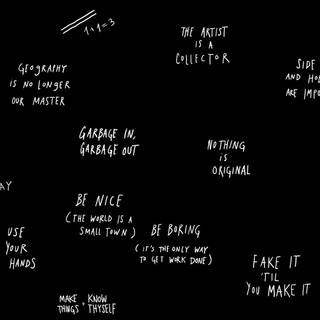 1+1=3
THE ARTIST
IS A
COLLECTOR
GEOGRAPHY
IS NO LONGER
OUR MASTER
SIDE
AND
ARE
GARBAGE IN,
GARBAGE OUT
NOTHING
IS
ORIGINAL
AY
BE NICE
(THE WORLD IS A
SMALL TOWN)
USE
YOUR
HANDS
BE BORING
(IT'S THE ONLY WAY
TO GET WORK DONE)
FAKE IT
'TIL
YOU MAKE IT
MAKE
THINGS
KNOW
THYSELF